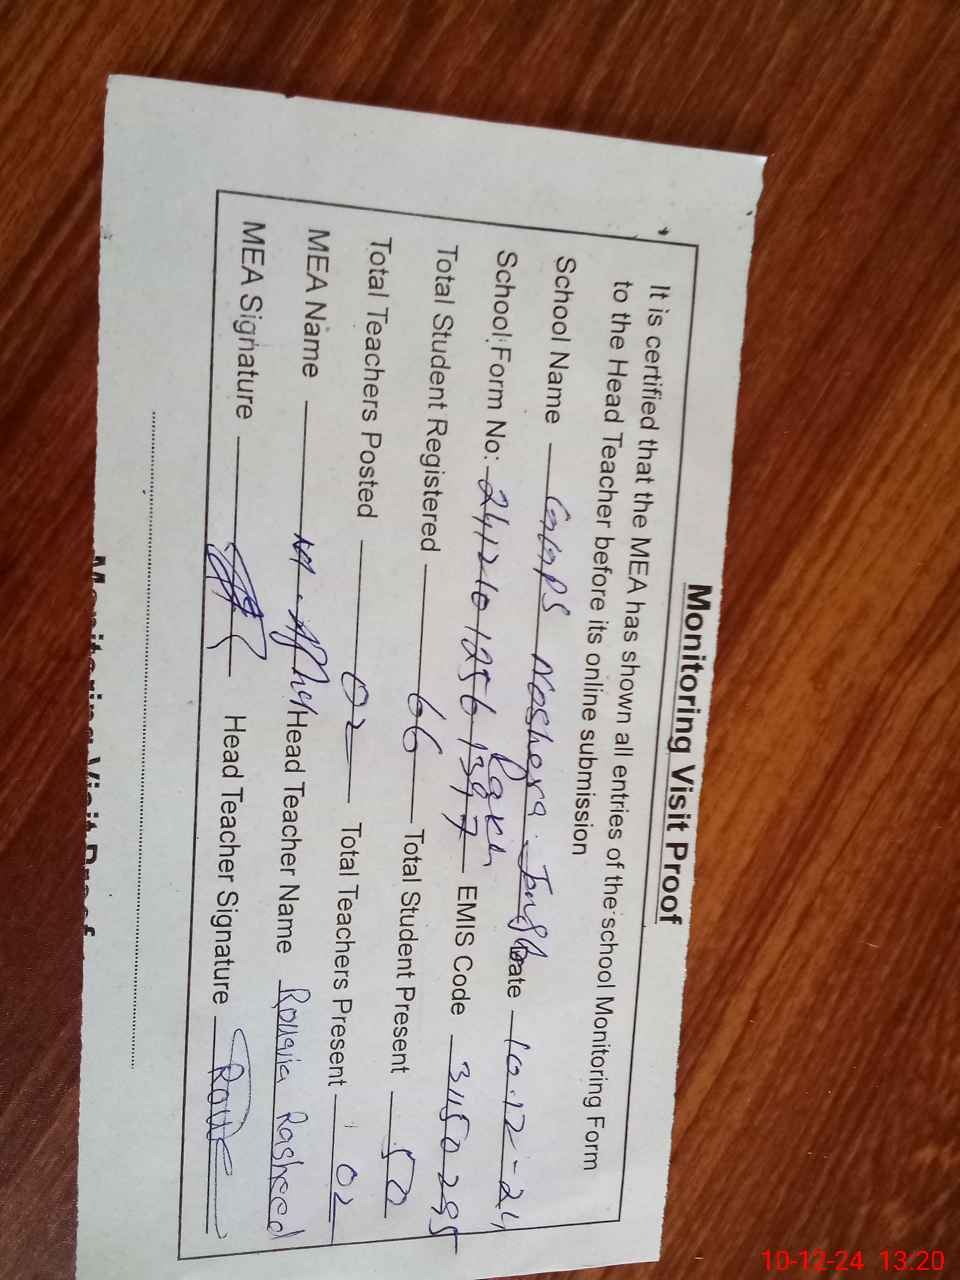 Monitoring Visit Proof
It is certified that the MEA has shown all entries of the school Monitoring Form
to the Head Teacher before its online submission
School Name GGPS Noshera Jngl Date 10-12-24
Rakh
School Form No: EMIS Code
Total Student Registered 66 Total Student Present 50
Total Teachers Posted 02 Total Teachers Present 02
MEA Name M. Head Teacher Name Rouqia Rasheed
MEA Signature Head Teacher Signature
Monitoring Visit Proof
10-12-24 13:20